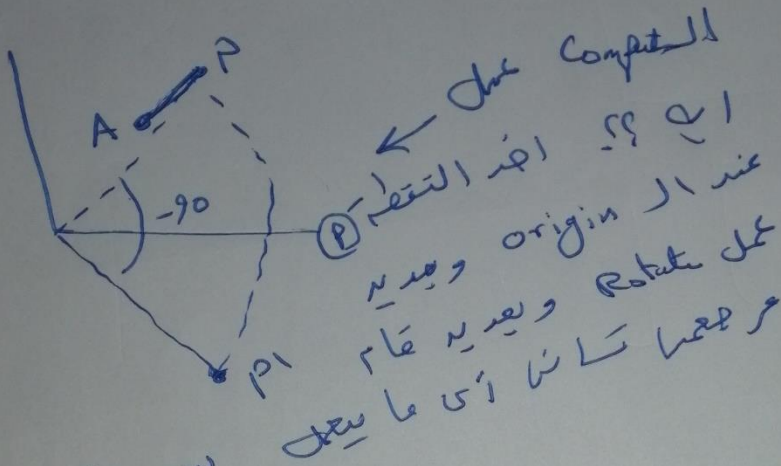 P
A
-90
P
P1
عمل Computer الـ
ايه ؟؟ اخد النقطه
عند الـ origin وبعدين
عمل Rotate وبعدين قام
مرجعها تاني زي ما